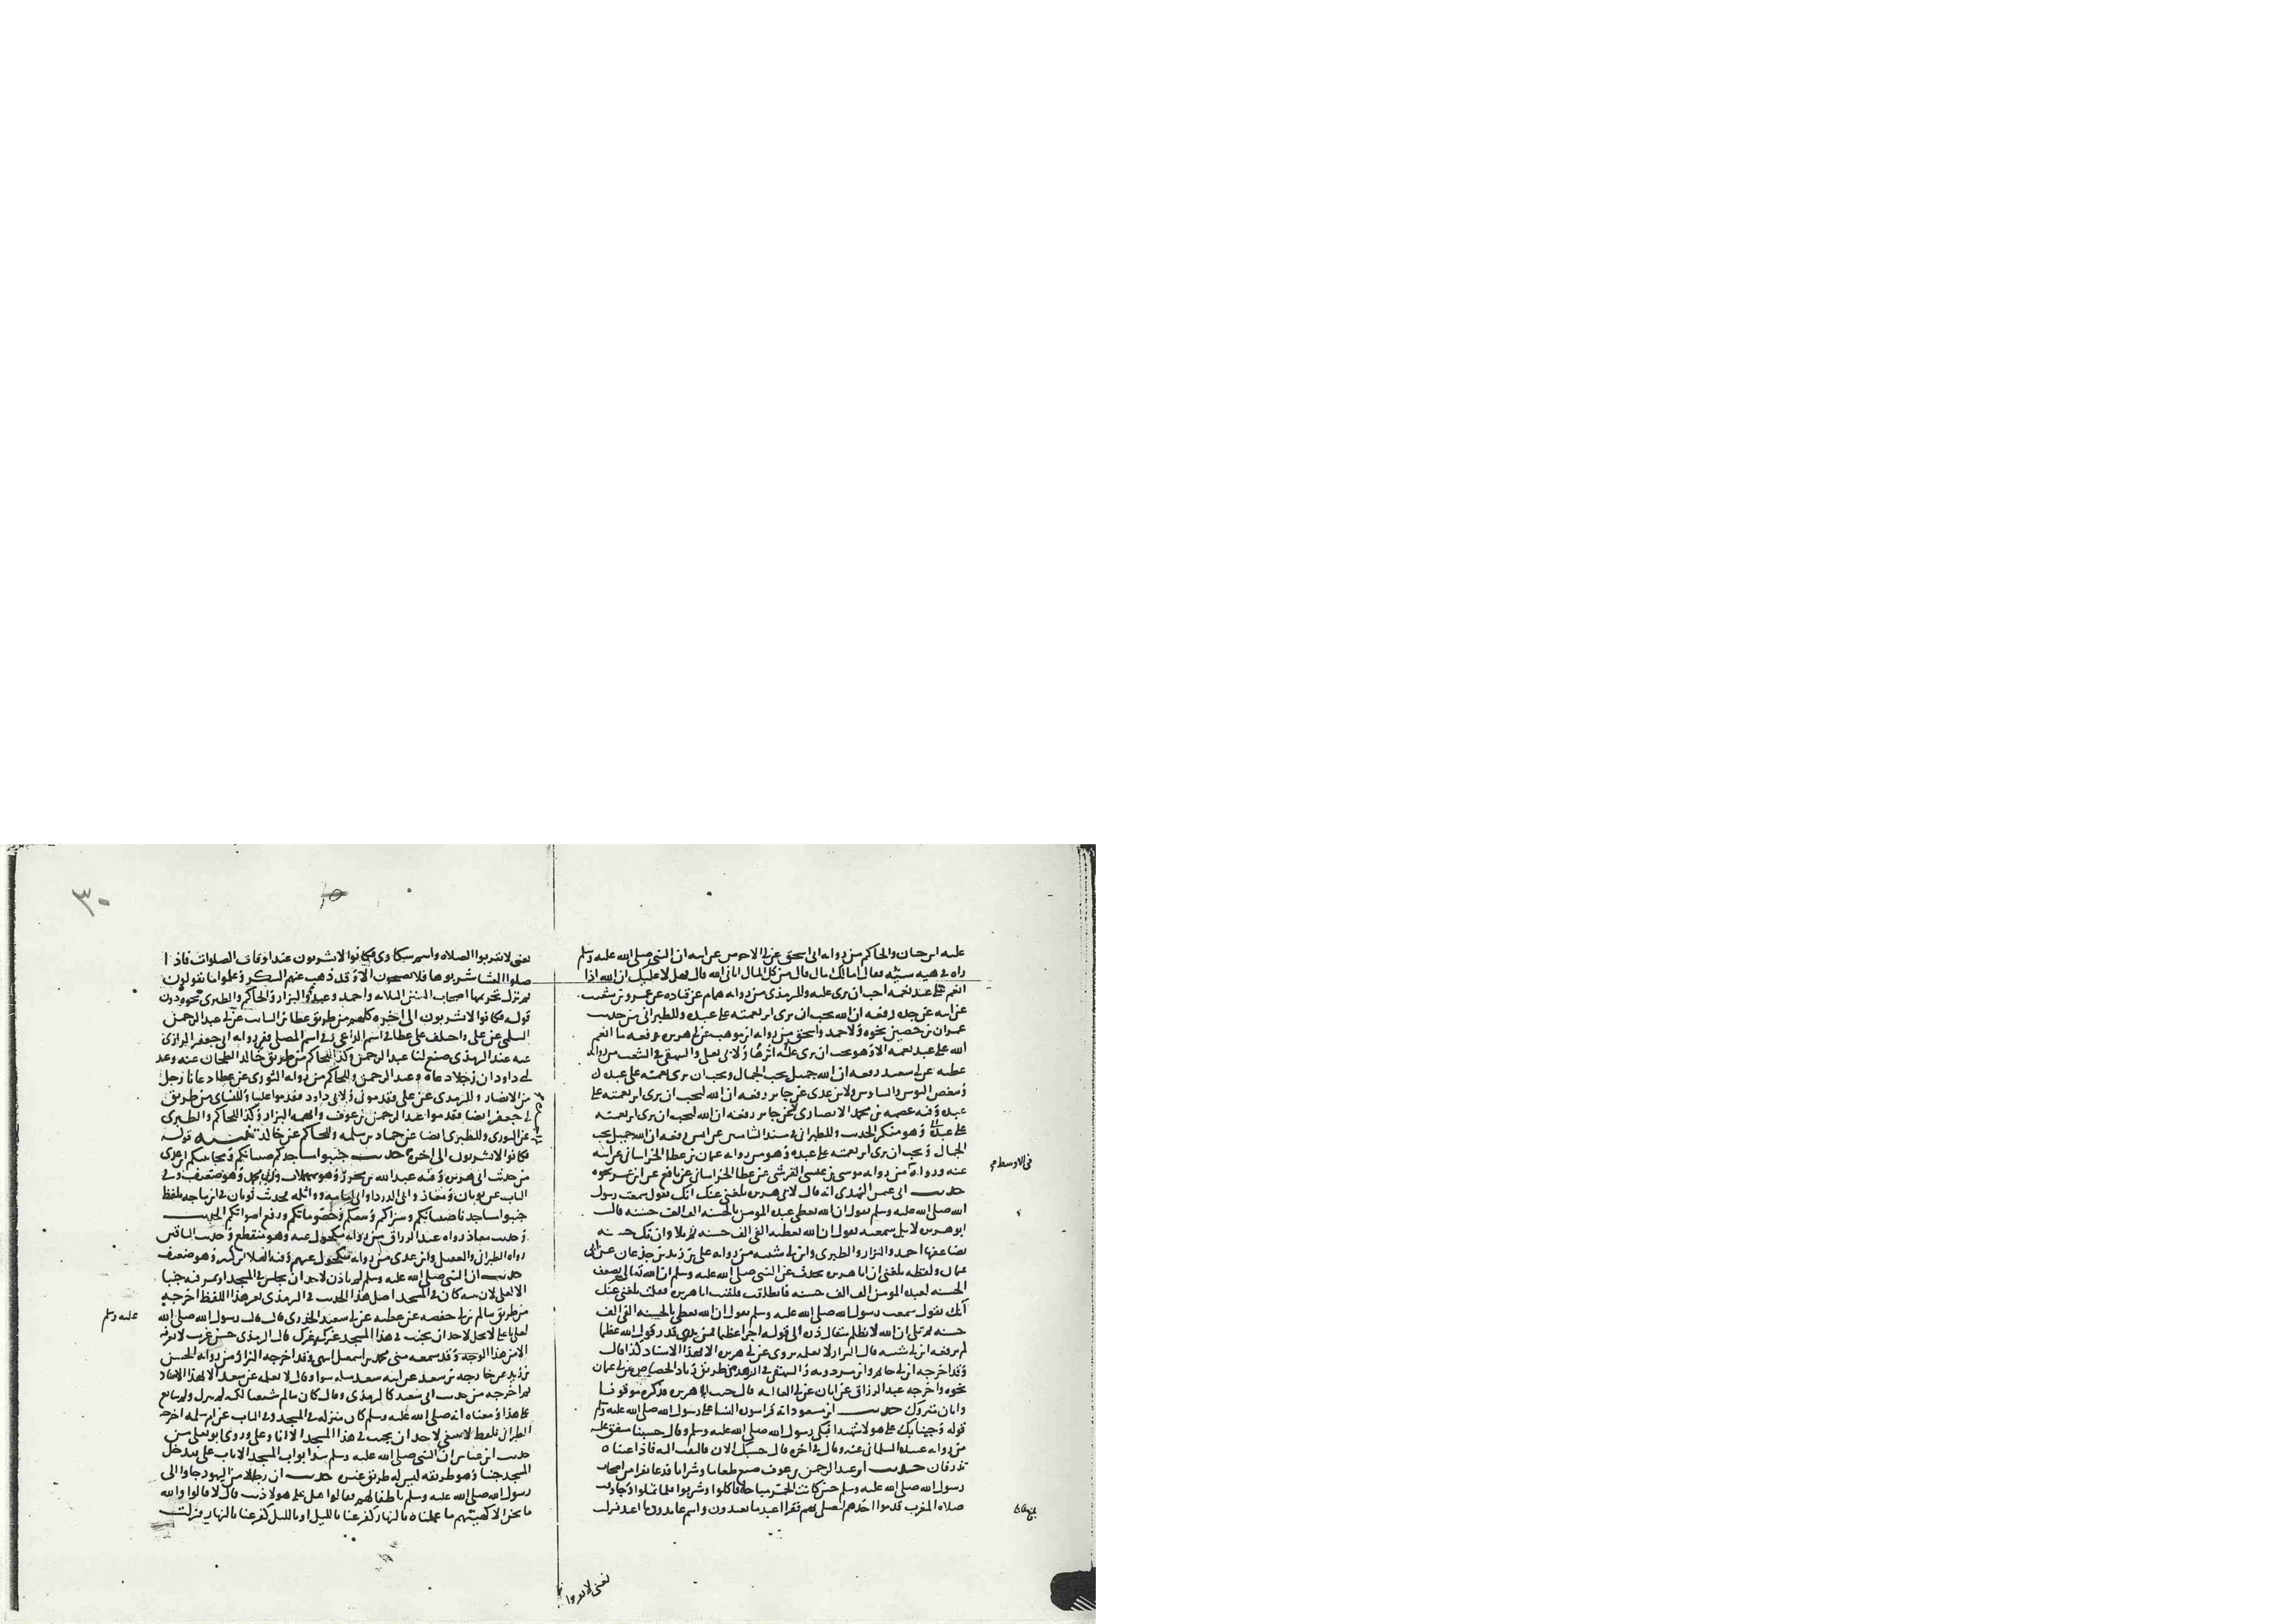 عليه ابن حبان والحاكم من رواية ابى اسحق عن ابى الاحوص عن ابيه ان النبى صلى الله عليه وسلم
راه فى هيه سيئه فقال امالك مال قال من كل المال اتانى الله قال فهل لا عليك ان الله اذا
انعم على عبد نعمه احب ان ترى عليه وللترمذى من رواية همام عن قتاده عن عمرو بن شعيب
عن ابيه عن جده رفعه ان الله يحب ان يرى اثر نعمته على عبده وللطبرانى من حديث
عمران بن حصين نحوه ولاحمد واسحق من رواية ابن موهب عن ابى هريره رفعه ما انعم
الله على عبد نعمه الا وهو يحب ان يرى عليه اثرها ولابى يعلى والبيهقى فى الشعب من رواية
عطيه عن ابى سعيد رفعه ان الله جميل يحب الجمال ويحب ان يرى نعمته على عبده
ويبغض البوس والتباوس ولابن عدى عن جابر رفعه ان الله ليحب ان يرى اثر نعمته على
عبده وفيه عصمه بن محمد الانصارى عن جابر رفعه ان الله ليحب ان يرى اثر نعمته
على عبده وهو منكر الحديث وللطبرانى فى مسند الشاميين عن انس رفعه ان الله جميل يحب
الجمال ويحب ان يرى اثر نعمته على عبده وهو من رواية عثمان بن عطا الخراسانى عن ابيه
عنه ورواه من رواية موسى بن عيسى القرشى عن عطا الخراسانى عن نافع عن ابن عمر نحوه
فى الاوسط صح
حديث ابى عثمن النهدى انه قال لابى هريره بلغنى عنك انك تقول سمعت رسول
الله صلى الله عليه وسلم يقول ان الله يعطى عبده المومن بالحسنه الف الف حسنه قال
ابو هريره لا بل سمعته يقول ان الله يعطيه الفى الف حسنه ثم تلا وان تك حسنه
يضاعفها احمد والبزار والطبرى وابن ابى شيبه من رواية على بن زيد بن جدعان عن ابى
عثمان ولفظه بلغنى ان ابا هريره يحدث عن النبى صلى الله عليه وسلم ان الله تعالى يضعف
الحسنه لعبده المومن الف الف حسنه فانطلقت فلقيت ابا هريره فقلت بلغنى عنك
انك تقول سمعت رسول الله صلى الله عليه وسلم يقول ان الله يعطى بالحسنه الفى الف
حسنه ثم تلى ان الله لا يظلم مثقال ذره الى قوله اجرا عظيما فمن يدرى قدر قول الله عظيما
لم يرفعه ابن ابى شيبه قال البزار لا نعلمه يروى عن ابى هريره الا بهذا الاسناد كذا قال
وقد اخرجه ابن ابى حاتم وابن مردويه والبيهقى فى الزهد من طريق زياد الجصاص عن ابى عثمان
نحوه واخرجه عبد الرزاق عن ابان عن ابى العاليه قال حيث ابا هريره فذكره موقوفا
وابان متروك حديث ابن مسعود انه قرا سوره النسا على رسول الله صلى الله عليه وسلم
قوله وجينا بك على هولا شهيدا فبكى رسول الله صلى الله عليه وسلم وقال حسبنا متفق عليه
من رواية عبيده السلمانى عنه وقال فى اخره قال حسبك الان فالتفت اليه فاذا عيناه
تذرفان حديث ان عبد الرحمن بن عوف صنع طعاما وشرابا فدعا نفرا من اصحاب
رسول الله صلى الله عليه وسلم حين كانت الخمر مباحة فاكلوا وشربوا فلما ثملوا وجا وقت
صلاه المغرب قدموا احدهم ليصلى بهم فقرا اعبد ما تعبدون وانتم عابدون ما اعبد فنزلت
يعنى لا تقربوا
٣٠
يعنى لا تقربوا الصلاه وانتم سكارى فكانوا لا يشربون عند اوقات الصلوات فاذا
صلوا العشا شربوها فلا يصبحون الا وقد ذهب عنهم السكر وعلموا ما يقولون
ثم نزل تحريمها اصحاب السنن الثلاثه واحمد وعبد والبزار والحاكم والطبرى نحوه دون
قوله فكانوا لا يشربون الى اخره كلهم من طريق عطا بن السايب عن ابى عبد الرحمن
السلمى عن على واختلف على عطا فى اسم الداعى وفى اسم المصلى ففى رواية ابى جعفر الرازى
عنه عند الترمذى صنع لنا عبد الرحمن وكذا للحاكم من طريق خالد الطحان عنه وعند
ابى داود ان رجلا دعاه وعبد الرحمن وللحاكم من رواية الثورى عن عطا دعانا رجل
من الانصار وللترمذى عن على فقدمونى ولابى داود فقدموا عليا وللنسائى من طريق
ابى جعفر ايضا فقدموا عبد الرحمن بن عوف وابهمه البزار وكذا للحاكم والطبرى
عن الثورى وللطبرى ايضا عن حماد بن سلمه وللحاكم عن خالد تنبيه قوله
فكانوا لا يشربون الى اخره حديث جنبوا مساجدكم صبيانكم ومجانينكم ابن عدى
من حديث ابى هريره وفيه عبد الله بن محرر وهو ضعيف وفى
الباب عن ثوبان ومعاذ وابى الدردا وابى امامه وواثله فحديث ثوبان فى ابن ماجه بلفظ
جنبوا مساجدنا صبيانكم وشراكم وبيعكم وخصوماتكم ورفع اصواتكم الحديث
وحديث معاذ رواه عبد الرزاق من رواية مكحول عنه وهو منقطع وحديث الباقين
رواه الطبرانى والعقيلى وابن عدى من رواية مكحول عنهم وفيه العلا بن كثير وهو ضعيف
حديث ان النبى صلى الله عليه وسلم لم ياذن لاحد ان يجلس فى المسجد او يمر فيه جنبا
الا لعلى لان بيته كان فى المسجد اصل هذا الحديث فى الترمذى بغير هذا اللفظ اخرجه
من طريق سالم بن ابى حفصه عن عطيه عن ابى سعيد الخدرى قال قال رسول الله صلى الله
عليه وسلم
لعلى يا على لا يحل لاحد ان يجنب فى هذا المسجد غيرى وغيرك قال الترمذى حسن غريب لا نعرفه
الا من هذا الوجه وقد سمعه منى محمد بن اسمعيل انتهى وقد اخرجه البزار من رواية الحسن
بن زيد عن خارجه بن سعد عن ابيه سعد مثله سوا وقال لا نعلمه عن سعد الا بهذا الاسناد
ثم اخرجه من حديث ابى سعيد كالترمذى وقال كان سالم شيعيا لكنه لم يترك ولم يتابع
على هذا ومعناه انه صلى الله عليه وسلم كان منزله فى المسجد وفى الباب عن ام سلمه اخرجه
الطبرانى بلفظ لا ينبغى لاحد ان يجنب فى هذا المسجد الا انا وعلى وروى ابو يعلى من
حديث ابن عباس ان النبى صلى الله عليه وسلم سد ابواب المسجد الا باب على يدخل
المسجد جنبا وهو طريقه ليس له طريق غيره حديث ان رجالا من اليهود جاوا الى
رسول الله صلى الله عليه وسلم باطفالهم فقالوا هل على هولا ذنب قال لا قالوا والله
ما نحن الا كهيئتهم ما عملناه بالنهار كفر عنا بالليل او بالليل كفر عنا بالنهار فنزلت